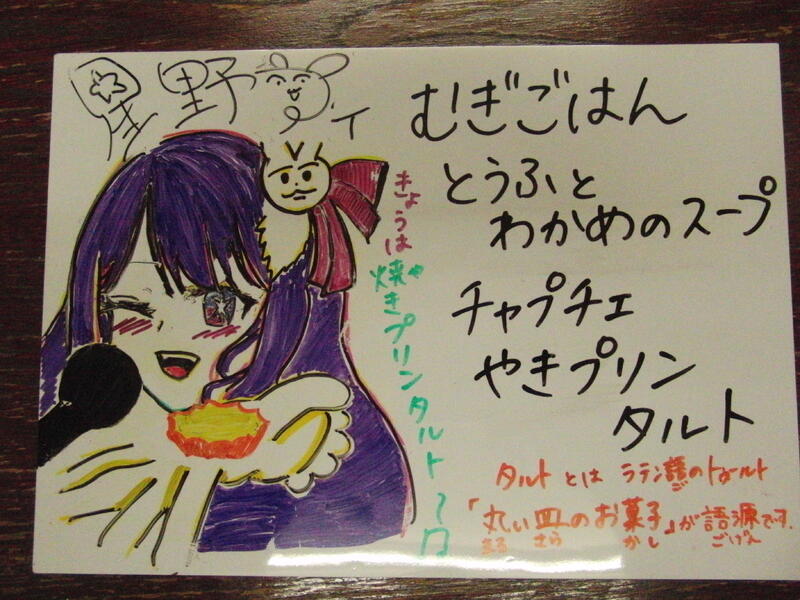 星野アイ
むぎごはん
とうふと
わかめのスープ
チャプチェ
やきプリン
タルト
きょうは
焼きプリンタルトの日
や
タルトとは ラテン語のトールト
ご
「丸い皿のお菓子」が語源です。
まる さら かし ごげん